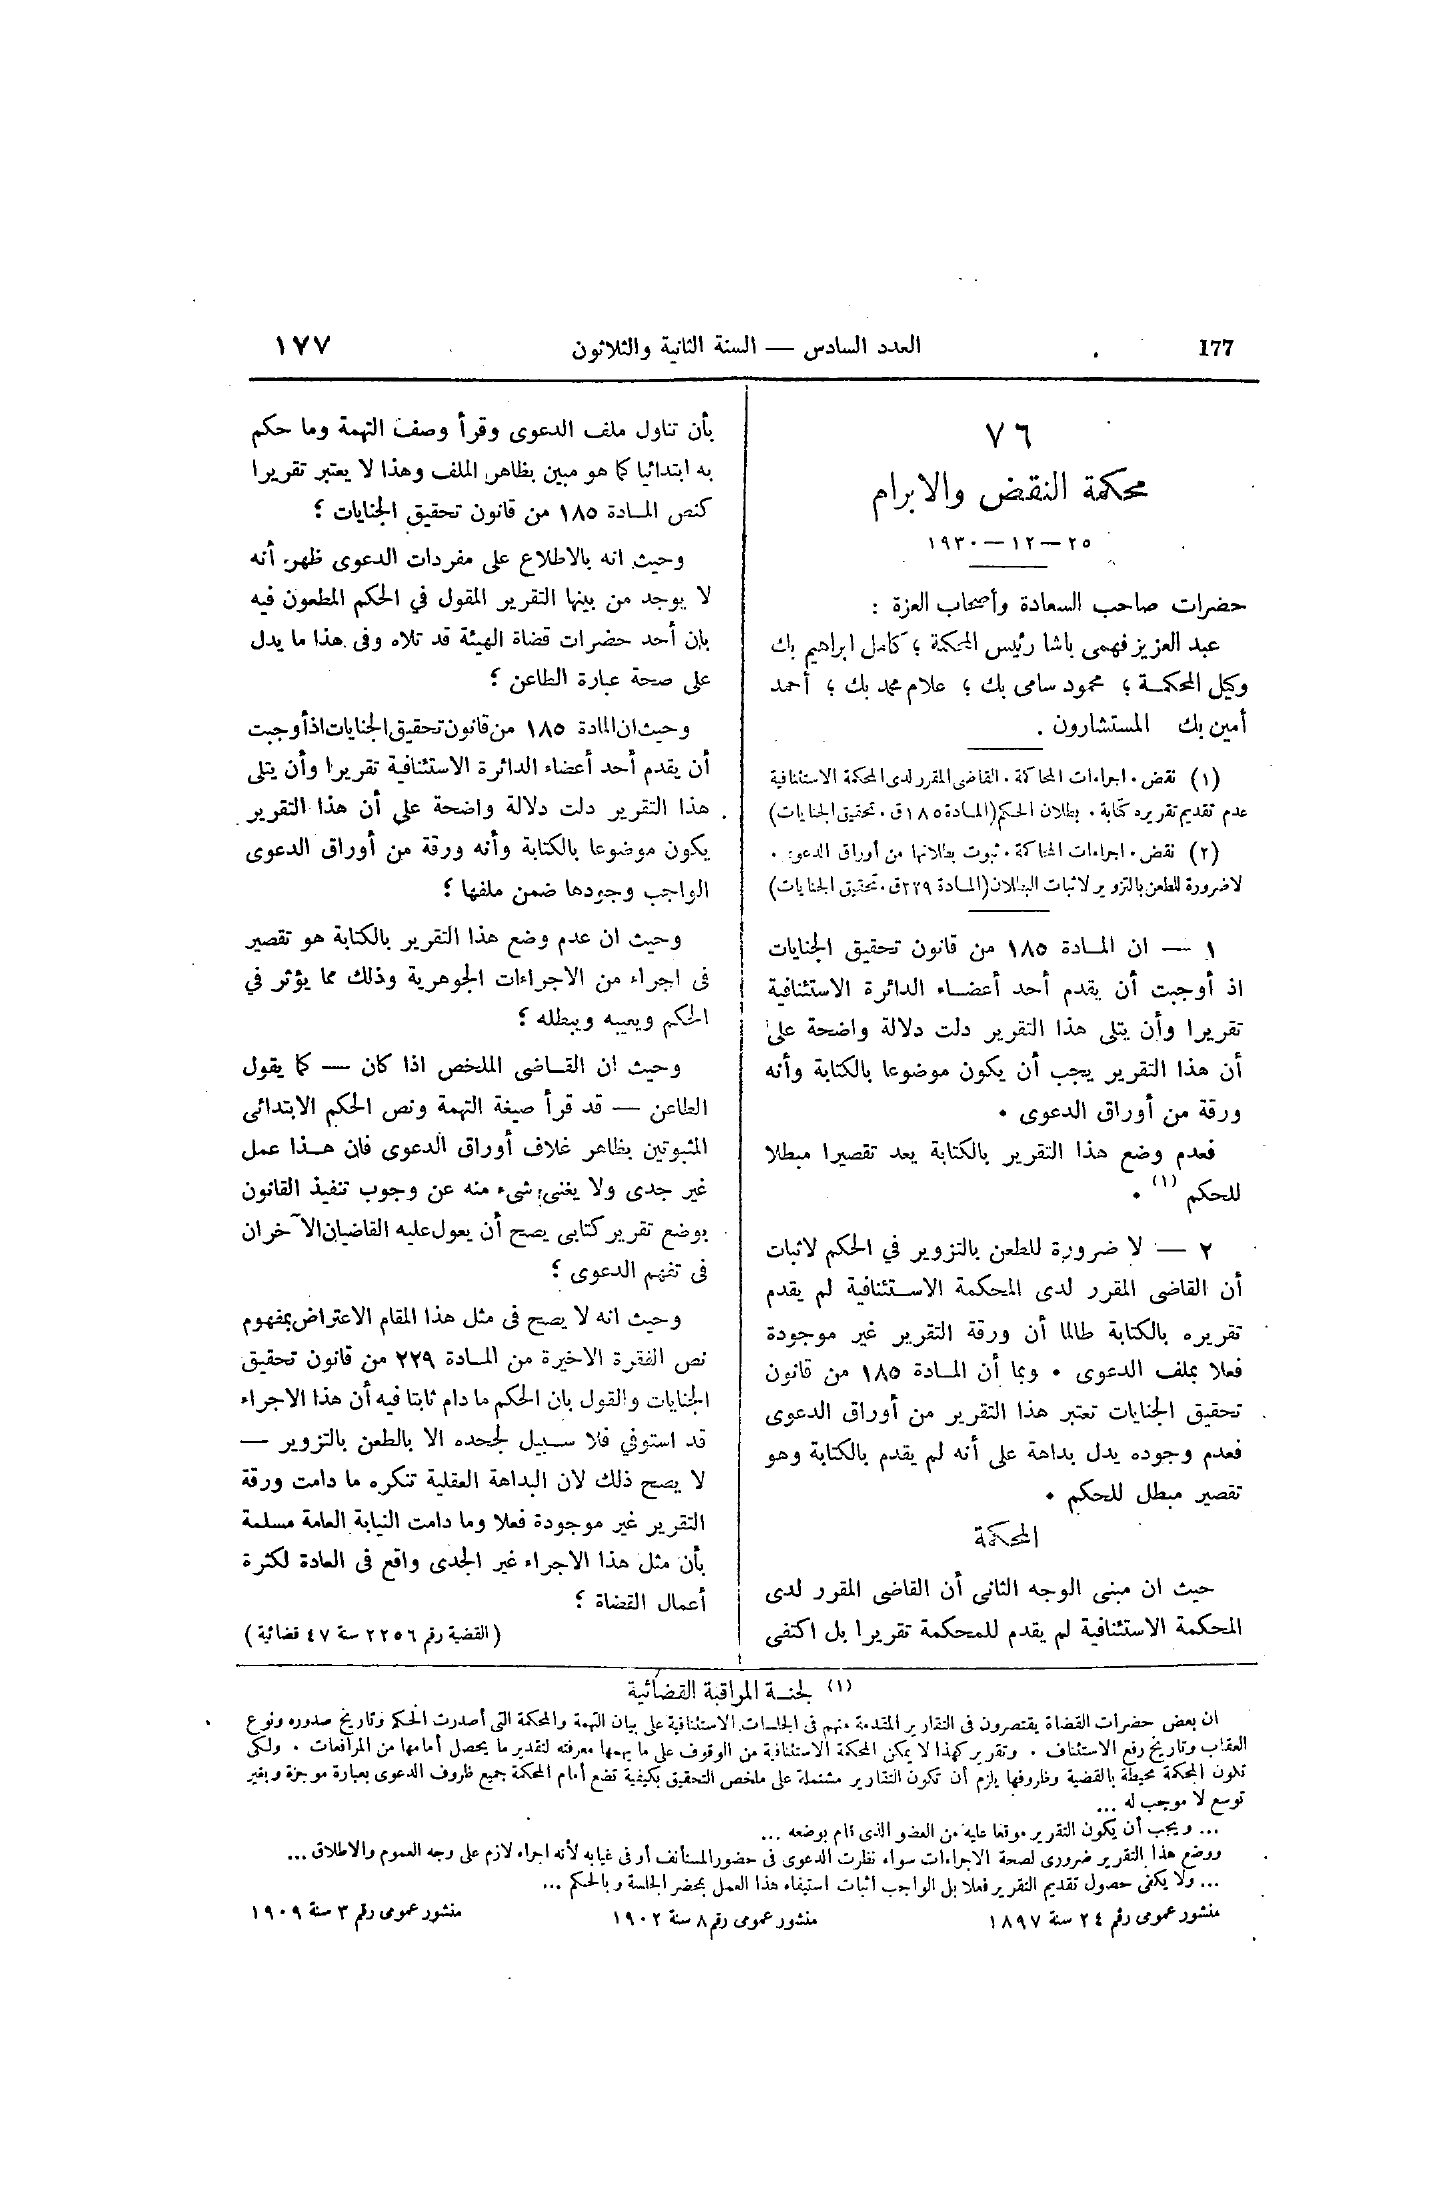 177 العدد السادس — السنة الثانية والثلاثون ١٧٧
٧٦
محكمة النقض والابرام
٢٥ — ١٢ — ١٩٣٠
حضرات صاحب السعادة وأصحاب العزة :
عبد العزيز فهمى باشا رئيس المحكمة ؛ كامل ابراهيم بك
وكيل المحكمـة ؛ محمود سامى بك ؛ علام محمد بك ؛ أحمد
أمين بك المستشارون .
(١) نقض . اجراءات المحاكمة . القاضى المقرر لدى المحكمة الاستئنافية
عدم تقديم تقريره كتابة . بطلان الحكم (المـادة ١٨٥ ق . تحقيق الجنايات)
(٢) نقض . اجراءات المحاكمة . ثبوت بطلانها من أوراق الدعوى .
لا ضرورة للطعن بالتزوير لاثبات البطلان (المـادة ٢٢٩ ق . تحقيق الجنايات)
١ — ان المـادة ١٨٥ من قانون تحقيق الجنايات
اذ أوجبت أن يقدم أحد أعضـاء الدائرة الاستئنافية
تقريرا وأن يتلى هذا التقرير دلت دلالة واضحة على
أن هذا التقرير يجب أن يكون موضوعا بالكتابة وأنه
ورقة من أوراق الدعوى .
فعدم وضع هذا التقرير بالكتابة يعد تقصيرا مبطلا
للحكم (١) .
٢ — لا ضرورة للطعن بالتزوير في الحكم لاثبات
أن القاضى المقرر لدى المحكمة الاسـتئنافية لم يقدم
تقريره بالكتابة طالما أن ورقة التقرير غير موجودة
فعلا بملف الدعوى . وبما أن المـادة ١٨٥ من قانون
تحقيق الجنايات تعتبر هذا التقرير من أوراق الدعوى
فعدم وجوده يدل بداهة على أنه لم يقدم بالكتابة وهو
تقصير مبطل للحكم .
المحكمة
حيث ان مبنى الوجه الثانى أن القاضى المقرر لدى
المحكمة الاستئنافية لم يقدم للمحكمة تقريرا بل اكتفى
بأن تناول ملف الدعوى وقرأ وصف التهمة وما حكم
به ابتدائيا كما هو مبين بظاهر الملف وهذا لا يعتبر تقريرا
كنص المـادة ١٨٥ من قانون تحقيق الجنايات ؟
وحيث انه بالاطلاع على مفردات الدعوى ظهر أنه
لا يوجد من بينها التقرير المقول في الحكم المطعون فيه
بإن أحد حضرات قضاة الهيئة قد تلاه وفى هذا ما يدل
على صحة عبارة الطاعن ؟
وحيث ان المادة ١٨٥ من قانون تحقيق الجنايات اذ أوجبت
أن يقدم أحد أعضاء الدائرة الاستئنافية تقريرا وأن يتلى
هذا التقرير دلت دلالة واضحة على أن هذا التقرير
يكون موضوعا بالكتابة وأنه ورقة من أوراق الدعوى
الواجب وجودها ضمن ملفها ؟
وحيث ان عدم وضع هذا التقرير بالكتابة هو تقصير
فى اجراء من الاجراءات الجوهرية وذلك مما يؤثر في
الحكم ويعيبه ويبطله ؟
وحيث ان القـاضى الملخص اذا كان — كما يقول
الطاعن — قد قرأ صيغة التهمة ونص الحكم الابتدائى
المثبوتين بظاهر غلاف أوراق الدعوى فان هـذا عمل
غير جدى ولا يغنى شىء منه عن وجوب تنفيذ القانون
بوضع تقرير كتابى يصح أن يعول عليه القاضيان الآخران
فى تفهم الدعوى ؟
وحيث انه لا يصح فى مثل هذا المقام الاعتراض بمفهوم
نص الفقرة الاخيرة من المـادة ٢٢٩ من قانون تحقيق
الجنايات والقول بان الحكم ما دام ثابتا فيه أن هذا الاجراء
قد استوفي فلا سـبيل لجحده الا بالطعن بالتزوير —
لا يصح ذلك لان البداهة العقلية تنكره ما دامت ورقة
التقرير غير موجودة فعلا وما دامت النيابة العامة مسلمة
بأن مثل هذا الاجراء غير الجدى واقع فى العادة لكثرة
أعمال القضاة ؟
(القضية رقم ٢٢٥٦ سنة ٤٧ قضائية)
(١) لجنـة المراقبة القضائية
ان بعض حضرات القضاة يقتصرون فى التقارير المتقدمة منهم فى الجلسات الاستئنافية على بيان التهمة والمحكمة التى أصدرت الحكم وتاريخ صدوره ونوع
العقاب وتاريخ رفع الاستئناف . وتقرير كهذا لا يمكن المحكمة الاستئنافية من الوقوف على ما يهمها معرفته لتقدير ما يحصل أمامها من المرافعات . ولكى
تكون المحكمة محيطة بالقضية وظروفها يلزم أن تكون التقارير مشتملة على ملخص التحقيق بكيفية تضع أمام المحكمة جميع ظروف الدعوى بعبارة موجزة وبغير
توسع لا موجب له ...
... ويجب أن يكون التقرير موقعا عليه من العضو الذى قام بوضعه ...
ووضع هذا التقرير ضرورى لصحة الاجراءات سواء نظرت الدعوى فى حضور المستأنف أو فى غيابه لأنه اجراء لازم على وجه العموم والاطلاق ...
... ولا يكفى حصول تقديم التقرير فعلا بل الواجب اثبات استيفاء هذا العمل بمحضر الجلسة وبالحكم ...
منشور عمومى رقم ٢٤ سنة ١٨٩٧ منشور عمومى رقم ٨ سنة ١٩٠٢ منشور عمومى رقم ٣ سنة ١٩٠٩